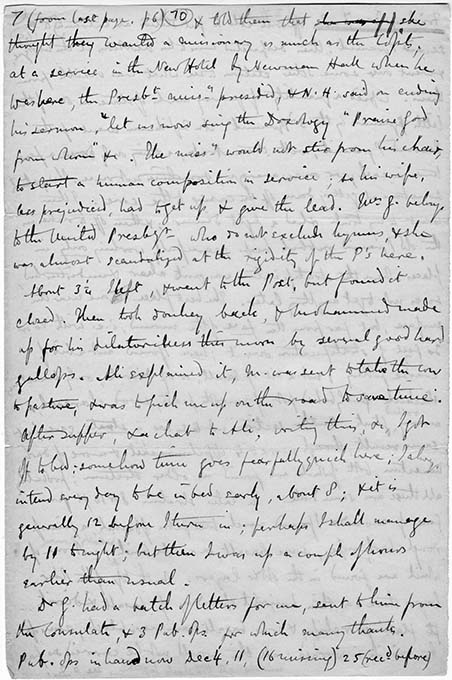 7 (from last page. p 6) 70 & told them that she
thought they wanted a missionary as much as the Copts.
at a service in the New Hotel by Newman Hall when he
was here, the Presbt. minr. presided, & N.H. said on ending
his sermon, "let us now sing the Doxology "Praise God
from whom" &c. The miss.y would not stir from his chair,
to start a human composition in service; so his wife,
less prejudiced, had to get up & give the lead. Mrs G. belongs
to the United Presbyt. who do not exclude hymns, & she
was almost scandalized at the rigidity of the P's here.
About 3¼ I left, & went to the Post, but found it
closed. Then took donkey back, & Mohammed made
up for his dilatoriness this morn by several good hard
gallops. Ali explained it, M. was sent to take the cow
to pasture, & was to pick me up on the road to save time.
After supper, & a chat to Ali, writing this, &c, I got
off to bed: somehow time goes fearfully quick here; I always
intend every day to be in bed early, about 8; & it is
generally 12 before I turn in; perhaps I shall manage
by 11 tonight; but then I was up a couple of hours
earlier than usual.
Dr G. had a batch of letters for me, sent to him from
the Consulate, & 3 Pub. Ops. for which many thanks.
Pub. Ops in hand now Dec 4, 11, (18 missing) 25 (recd. before)